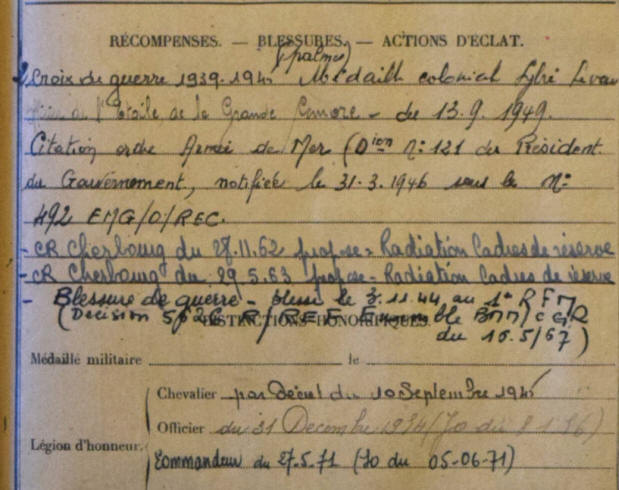 RÉCOMPENSES. — BLESSURES. — ACTIONS D'ÉCLAT.
(palmes)
Croix de guerre 1939.1945 Médaille colonial Lybie Levant
de l'Etoile de la Grande Comore - du 13.9.1949.
Citation ordre Armée de Mer (Dion N: 121 du Président
du Gouvernement, notifiée le 31-3.1946 sous le N:
492 EMG/O/REC.
- CR Cherbourg du 28.11.62 propose = Radiation Cadres de réserve
- CR Cherbourg du 29.5.63 propose = Radiation Cadres de réserve
- Blessure de guerre - blessé le 3.11.44 au 1er RFM
(Décision R/REF BMM/CGR
DISTINCTIONS HONORIFIQUES.
du 16.5/67)
Médaillé militaire le
Chevalier par Décret du 10 Septembre 1945
Officier du 31 Decembre (Jo du
Légion d'honneur.
Commandeur du 27.5.71 (JO du 05-06-71)